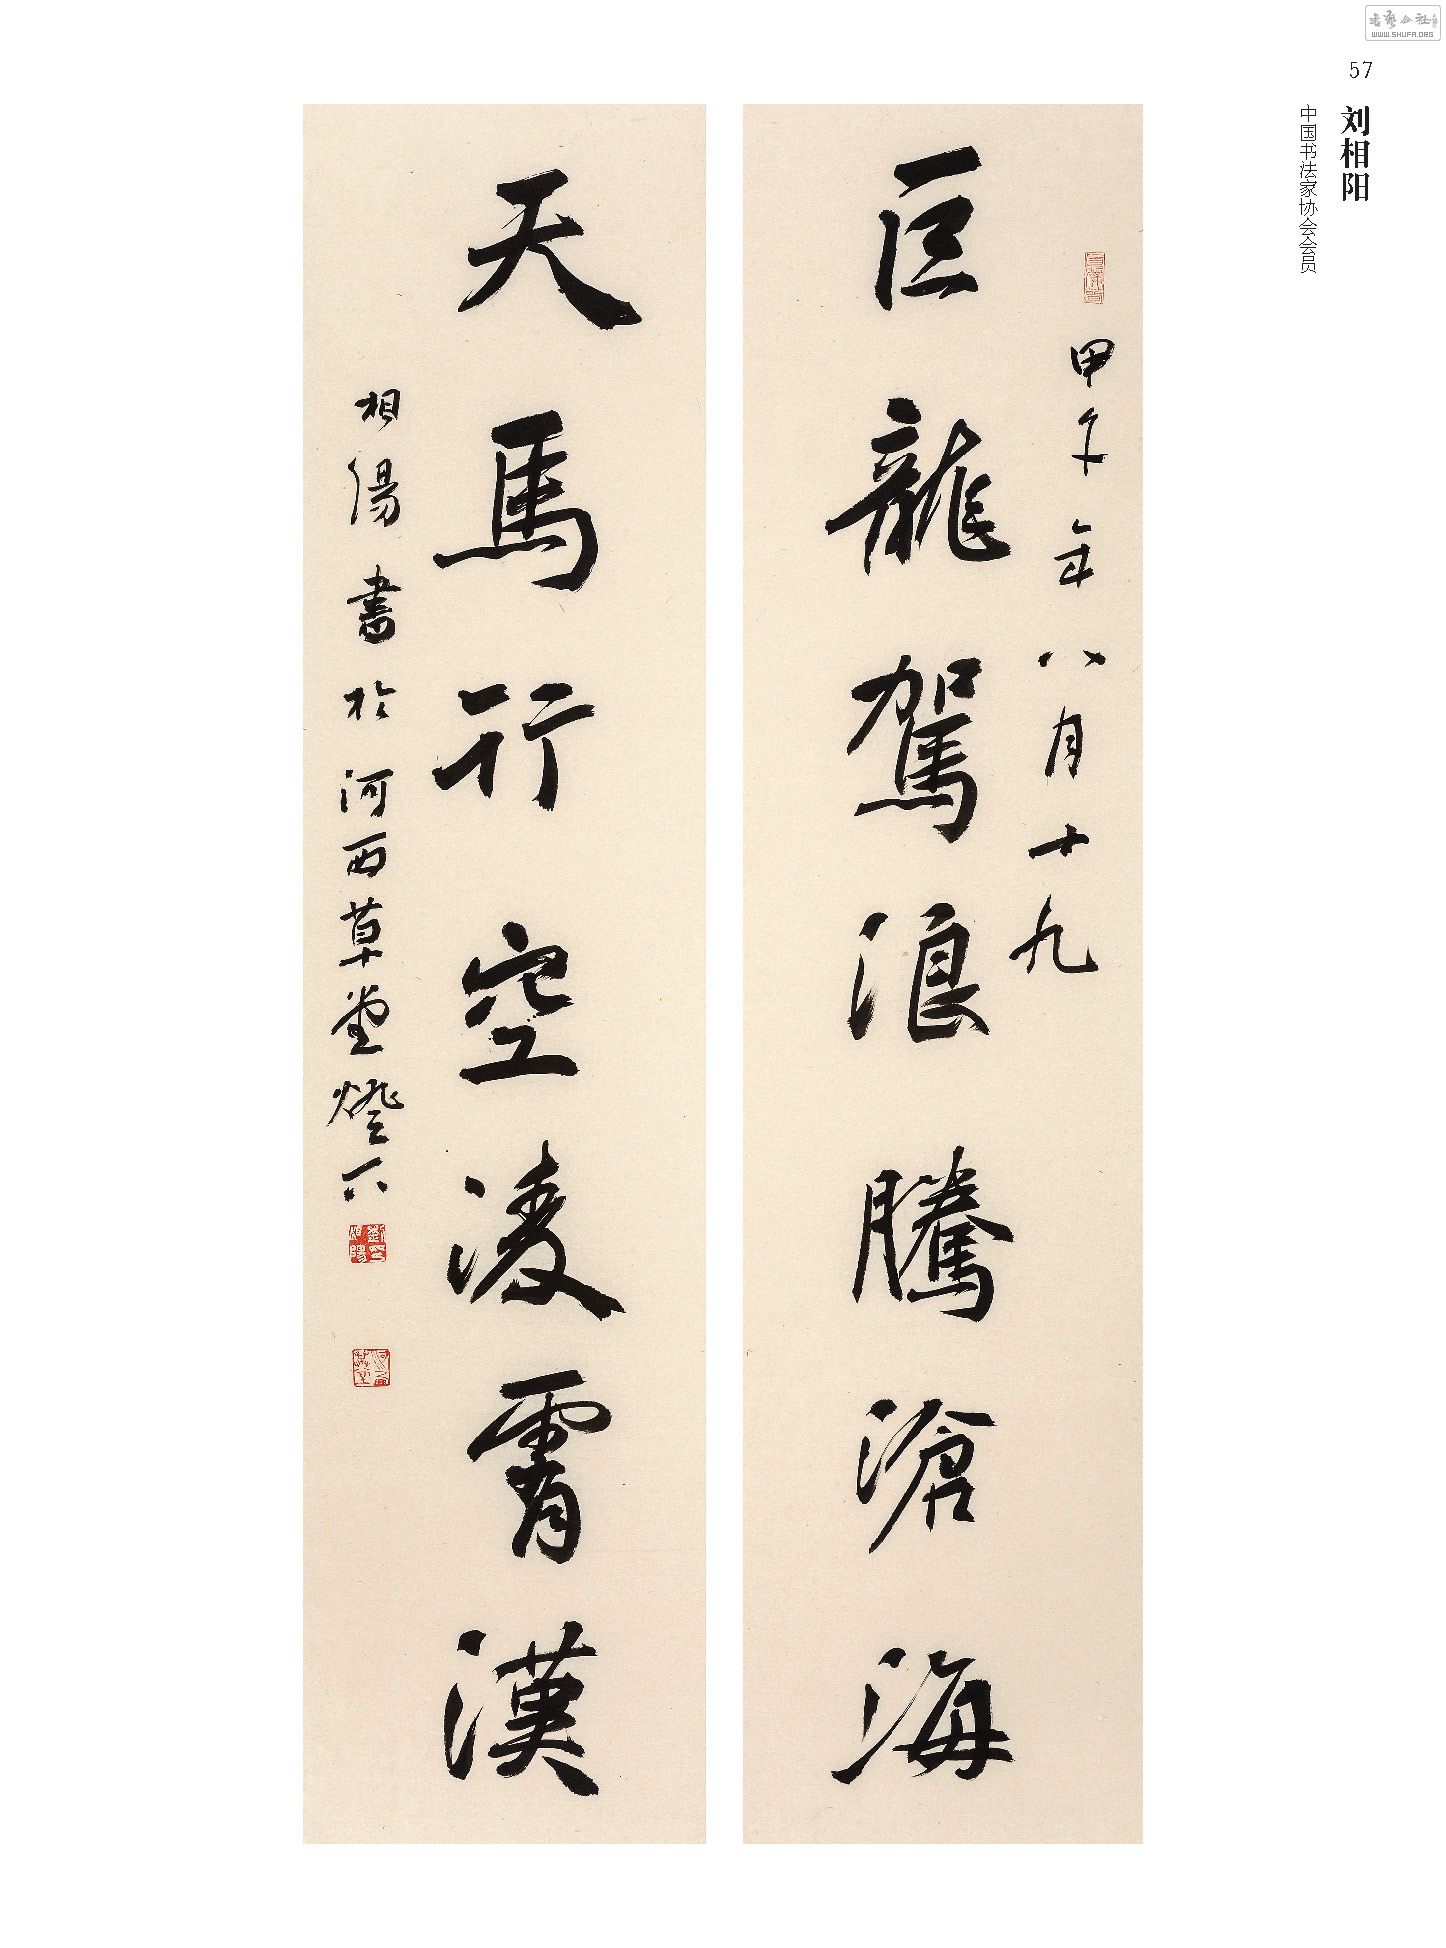 书艺公社
WWW.SHUFA.ORG
57
刘相阳
中国书法家协会会员
甲午年八月十九
巨龍駕浪騰滄海
天馬行空凌霄漢
相陽書於河西草堂燈下